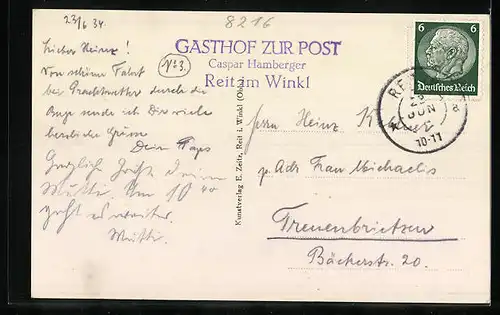 23/6 34
8216
Lieber Heinz!
Von schöner Fahrt
bei Prachtwetter durch die
Berge sende ich Dir viele
herzliche Grüsse
Dein Paps
Herzliche Grüße Deine
Mutti. Um 10⁴⁰
geht es weiter.
Mutti.
No 3.
GASTHOF ZUR POST
Caspar Hamberger
Reit im Winkl
Kunstverlag E. Zeitz, Reit i. Winkl (Obb.)
6 6
Deutsches Reich
JUN
10-11
Herrn Heinz
p. Adr. Frau Michaelis
Treuenbrietzen
Bäckerstr. 20.